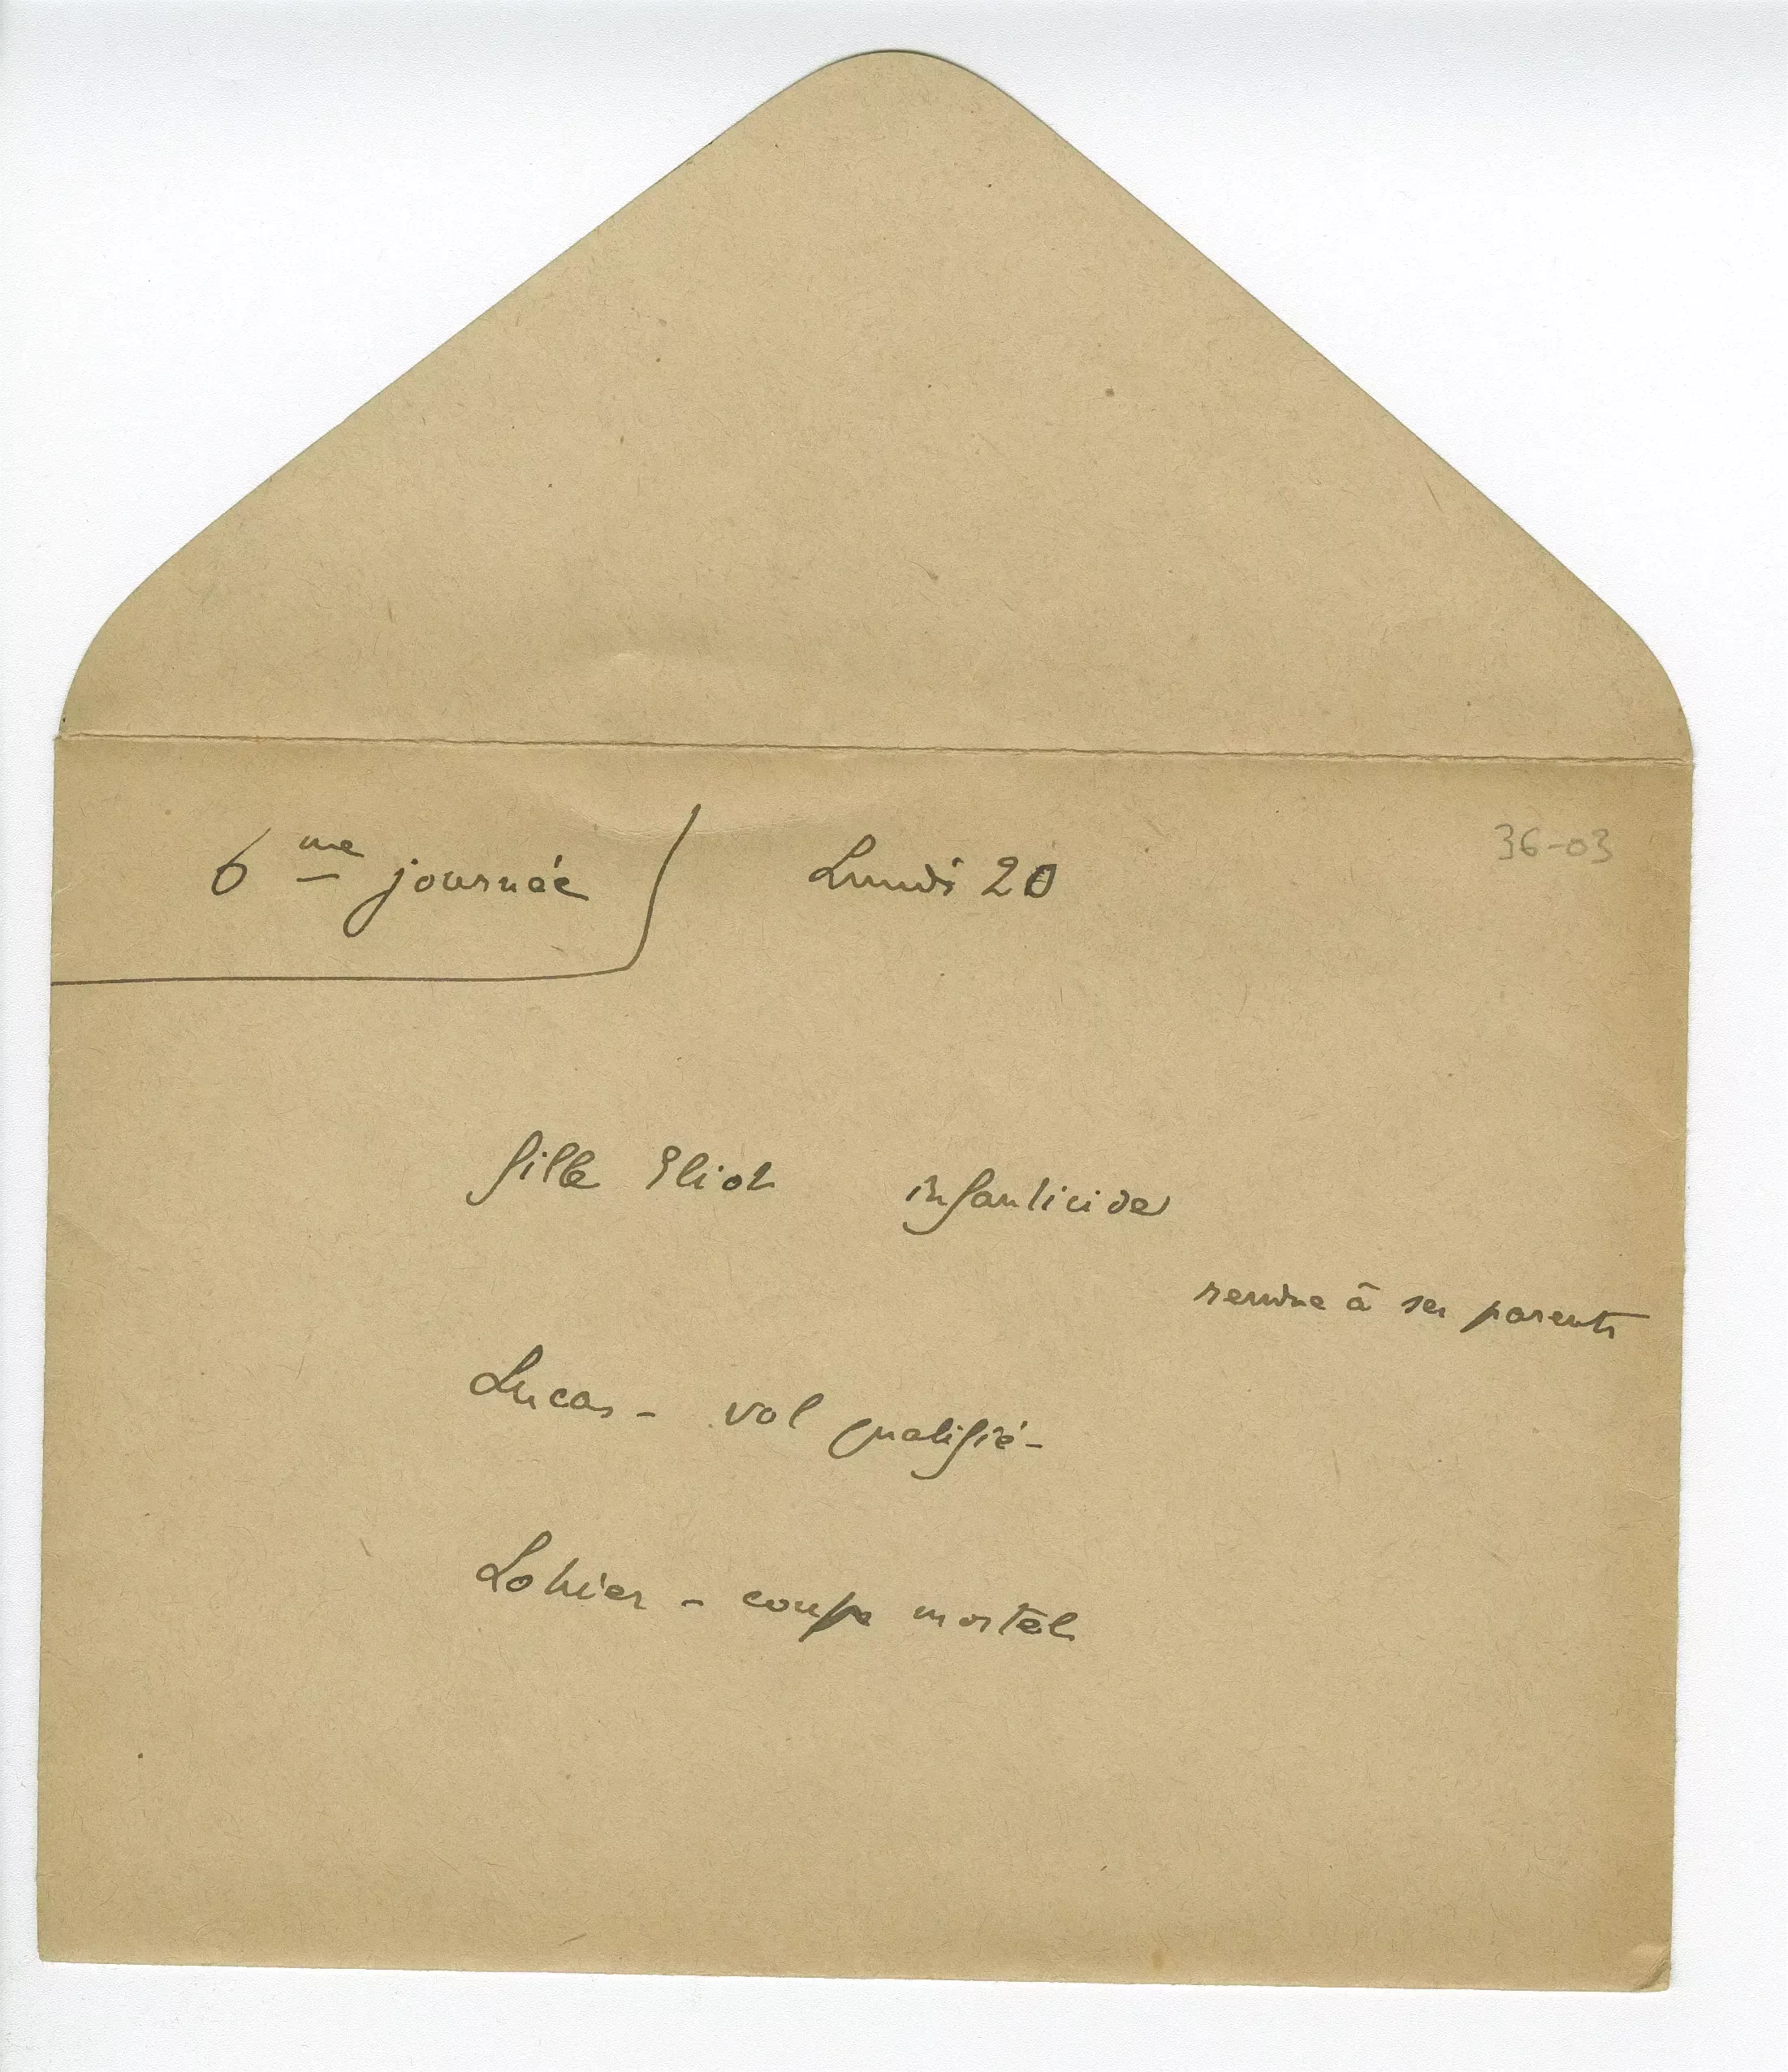 6me journée Lundi 20
36-03
fille Eliot infanticide
rendue à ses parents
Lucas - vol qualifié -
Lohier - coups mortel